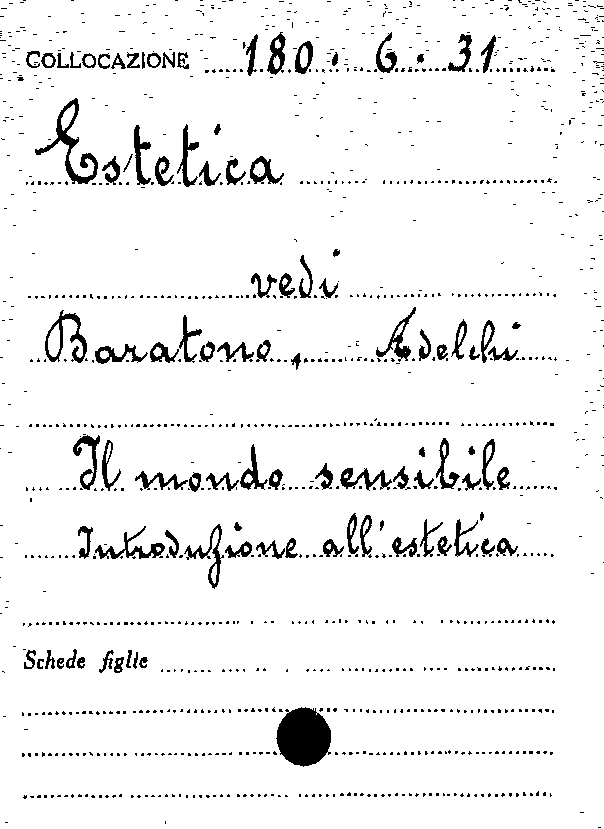 COLLOCAZIONE 180 . 6 . 31
Estetica
vedi
Baratono, Adelchi
Il mondo sensibile
Introduzione all'estetica
Schede figlie